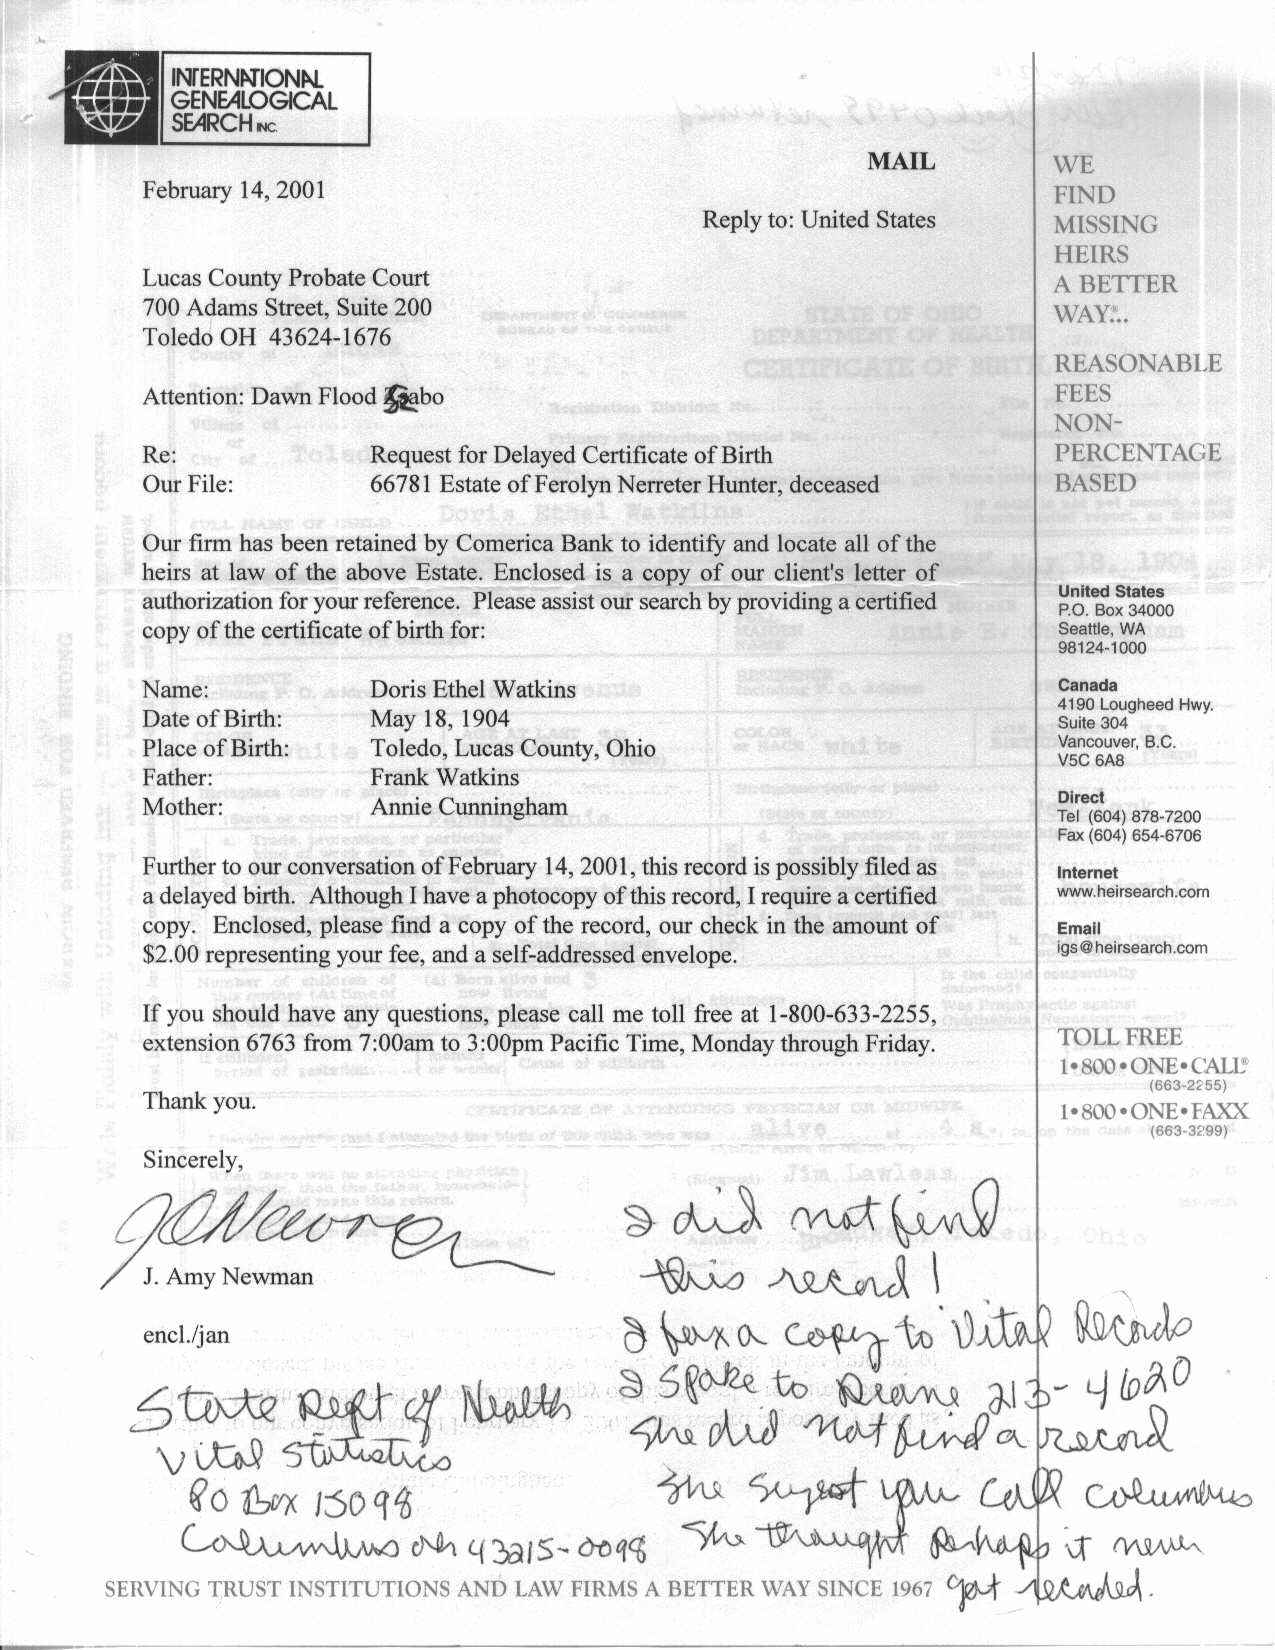 INTERNATIONAL
GENEALOGICAL
SEARCH INC.
MAIL
February 14, 2001
Reply to: United States
Lucas County Probate Court
700 Adams Street, Suite 200
Toledo OH 43624-1676
Attention: Dawn Flood Szabo
Re: Request for Delayed Certificate of Birth
Our File: 66781 Estate of Ferolyn Nerreter Hunter, deceased
Our firm has been retained by Comerica Bank to identify and locate all of the
heirs at law of the above Estate. Enclosed is a copy of our client's letter of
authorization for your reference. Please assist our search by providing a certified
copy of the certificate of birth for:
Name: Doris Ethel Watkins
Date of Birth: May 18, 1904
Place of Birth: Toledo, Lucas County, Ohio
Father: Frank Watkins
Mother: Annie Cunningham
Further to our conversation of February 14, 2001, this record is possibly filed as
a delayed birth. Although I have a photocopy of this record, I require a certified
copy. Enclosed, please find a copy of the record, our check in the amount of
$2.00 representing your fee, and a self-addressed envelope.
If you should have any questions, please call me toll free at 1-800-633-2255,
extension 6763 from 7:00am to 3:00pm Pacific Time, Monday through Friday.
Thank you.
Sincerely,
J. Amy Newman
encl./jan
State Dept of Health
Vital Statistics
PO Box 15098
Columbus Oh 43215-0098
I did not find
this record!
I fax a copy to Vital Records
I spoke to Diane 213-4620
She did not find a record
She sugest you call columbus
She thought perhaps it never
got recorded.
SERVING TRUST INSTITUTIONS AND LAW FIRMS A BETTER WAY SINCE 1967
WE
FIND
MISSING
HEIRS
A BETTER
WAY®...
REASONABLE
FEES
NON-
PERCENTAGE
BASED
United States
P.O. Box 34000
Seattle, WA
98124-1000
Canada
4190 Lougheed Hwy.
Suite 304
Vancouver, B.C.
V5C 6A8
Direct
Tel (604) 878-7200
Fax (604) 654-6706
Internet
www.heirsearch.com
Email
igs@heirsearch.com
TOLL FREE
1•800•ONE•CALL®
(663-2255)
1•800•ONE•FAXX
(663-3299)